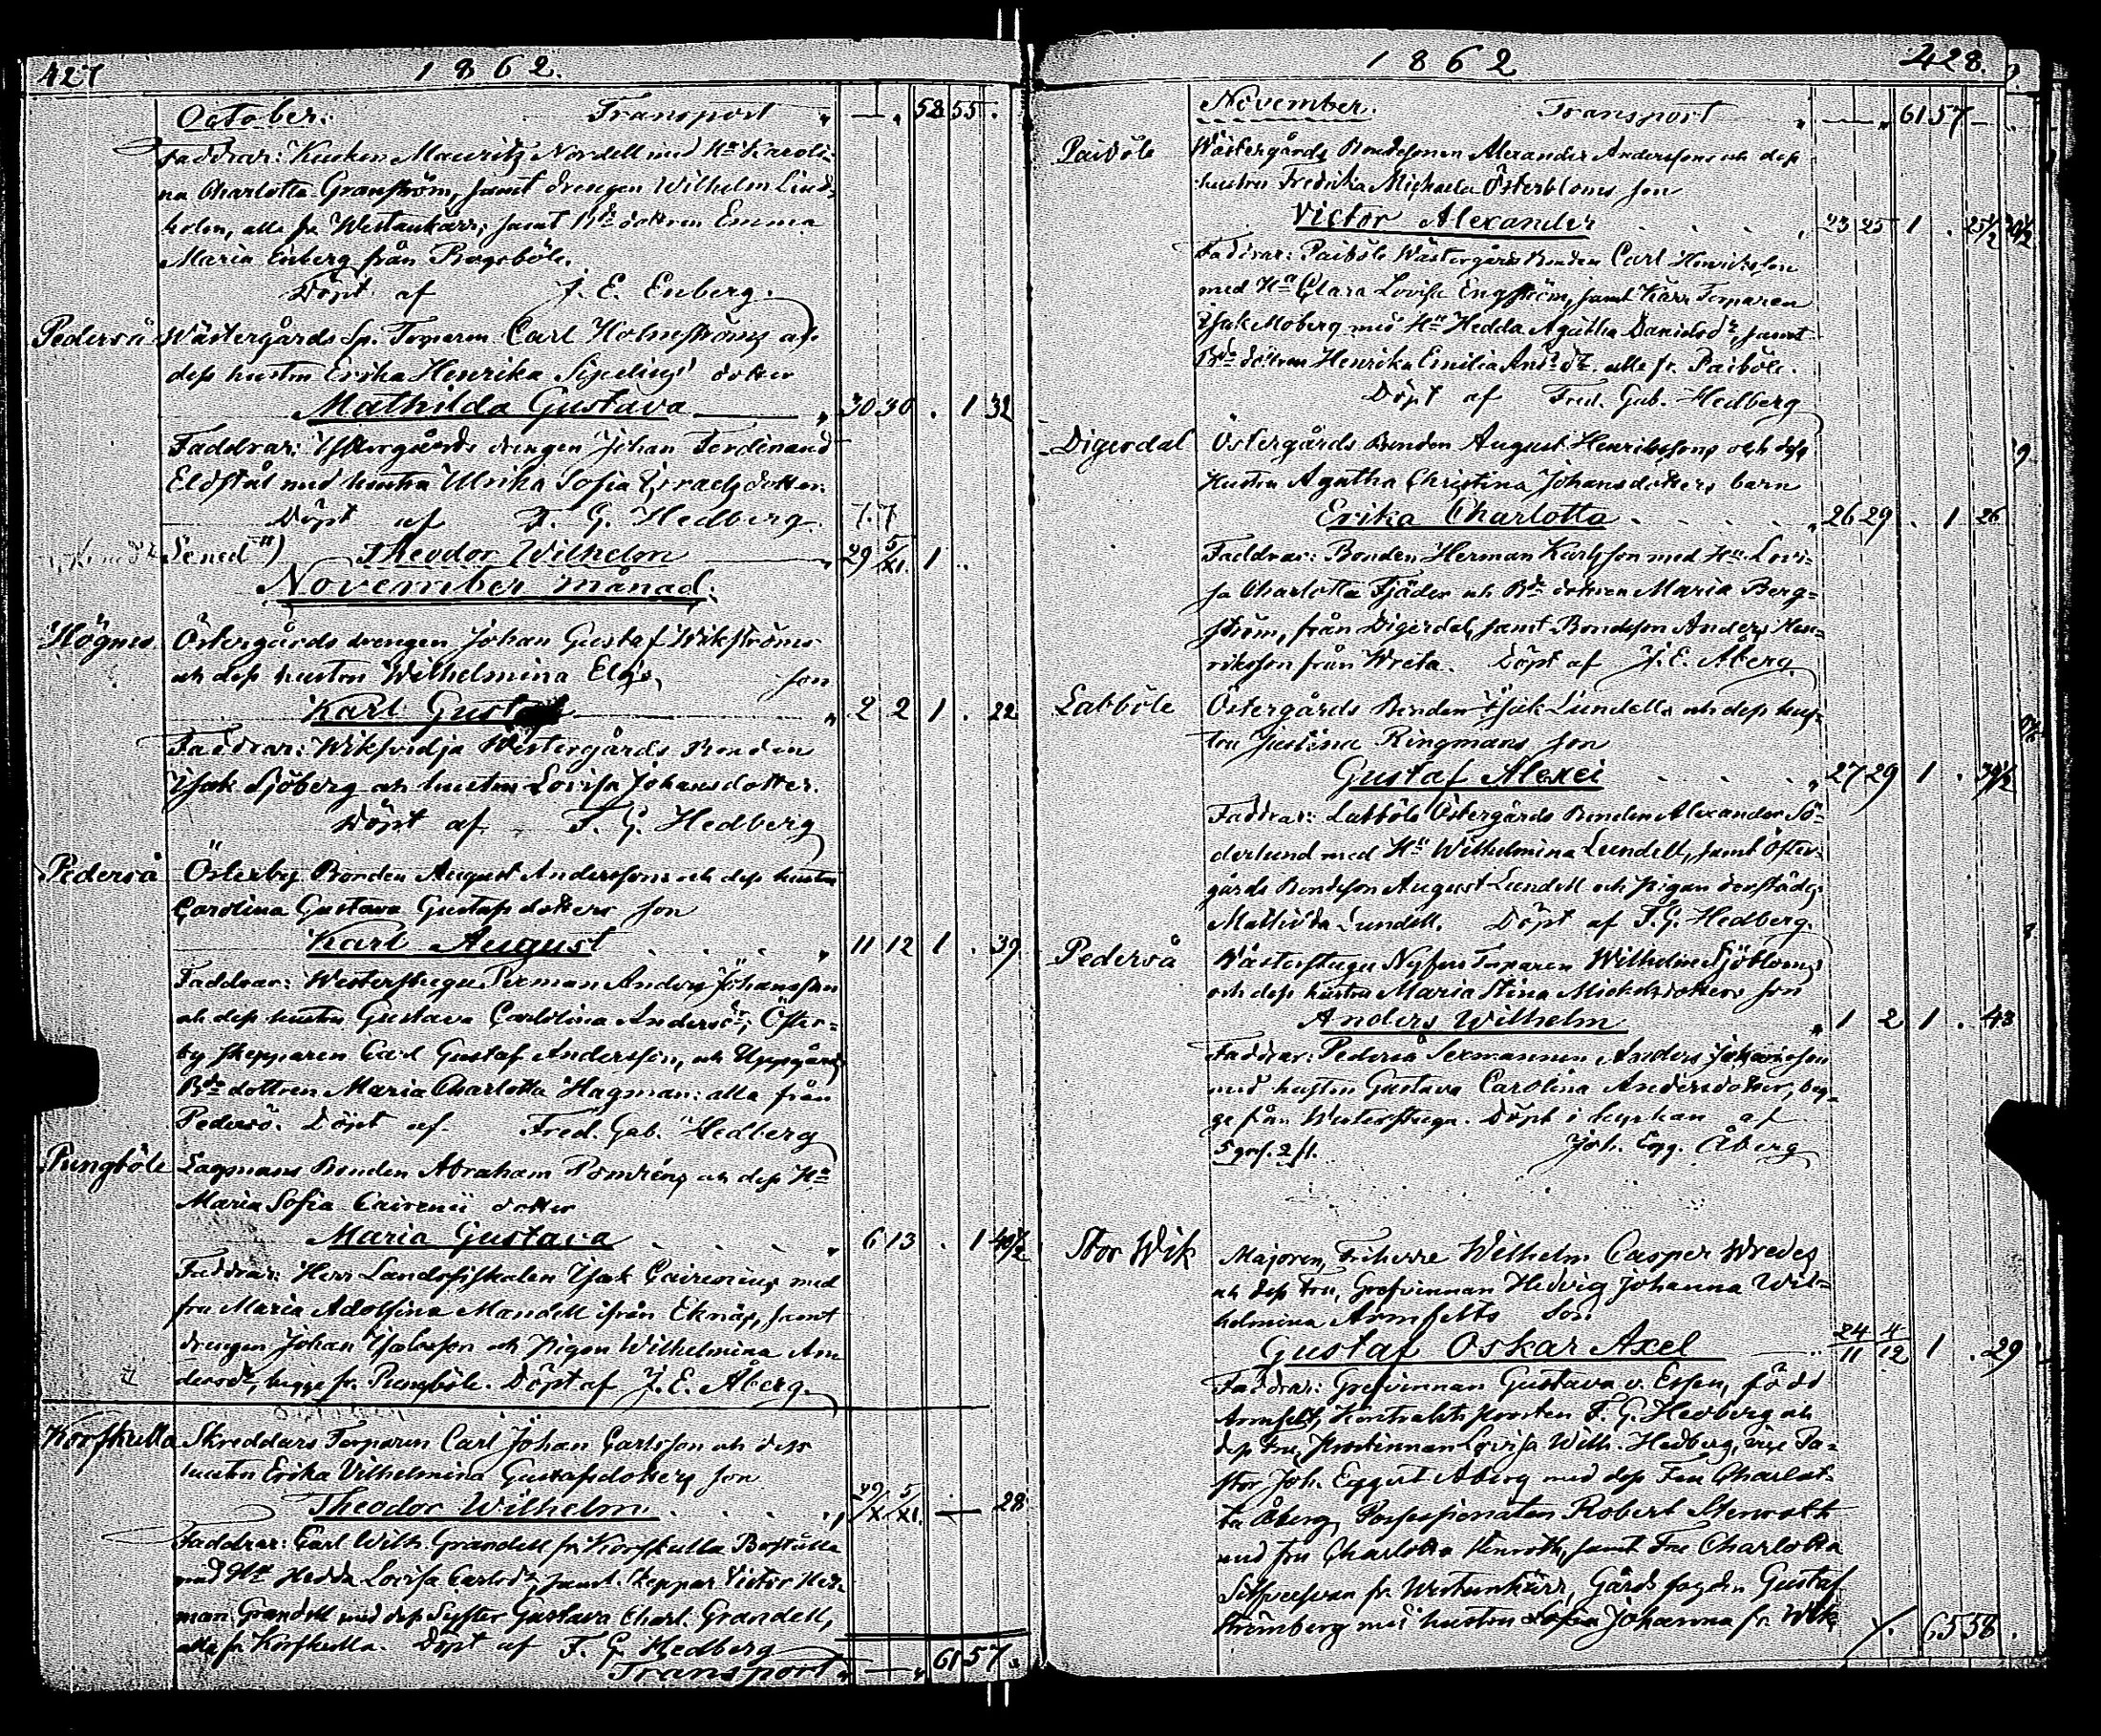 427 1862.
October. Transport " — " 58 55 .
Faddrar: Kusken Mauritz Nordell med Hu Karoli-
na Charlotta Granström, samt drengen Wilhelm Lind-
holm, alla fr. Westankärr, samt Bde dottren Emma
Maria Enberg från Progsböle.
Döpt af J. E. Enberg.
Pedersö Wästergårds Sp. Torparen Carl Holmströms och
dess hustru Erika Henrika Sipelius' dotter
Mathilda Gustava " 30 30 . 1 32
Faddrar: Ystergårds drengen Johan Ferdinand
Eldstål med hustru Ulrika Sofia Israels dotter.
Döpt af F. G. Hedberg. 7. 7
Se ned ") Theodor Wilhelm " 29 5/XI. 1 .
November månad.
Högnes Östergårds drengen Johan Gustaf Wikströms
och dess hustru Wilhelmina Elgs, son
Karl Gustaf " 2 2 1 . 22
Faddrar: Wiksvidja Westergårds Bonden
Isak Sjöberg och hustru Lovisa Johansdotter.
Döpt af F. G. Hedberg
Pederså Österby Bonden August Anderssons och dess hustru
Carolina Gustava Gustafsdotters son
Karl August " 11 12 1 . 39
Faddrar: Westerstugu Sexman Anders Johansson
och dess hustru Gustava Carolina Andersdr, Öster-
by skepparen Carl Gustaf Andersson, och Uppgårds
Bde dottren Maria Charlotta Hagman: alla från
Pedersö. Döpt af Fred. Gab. Hedberg
Pungböle Lagmans Bonden Abraham Pomréns och dess Hu
Maria Sofia Cairenii dotter
Maria Gustava " 6 13 . 1 40 1/2
Faddrar: Herr Landsfiskalen Isak Cairenius med
fru Maria Adolfina Mandell ifrån Eknäs, samt
drengen Johan Isaksson och pigan Wilhelmina An-
dersdr, begge fr. Pungböle. Döpt af J. E. Åberg.
Korskulla Skreddars Torparen Carl Johan Carlsson och dess
hustru Erika Vilhelmina Gustafsdotters son
Theodor Wilhelm " 29/X 5/XI. — 28
Faddrar: Carl Wilh. Grandell fr. Korskulla
med Hu Hedda Lovisa Carlsdr, samt Skeppar Victor Her-
man Grandell med dess Syster Gustava Charl. Grandell,
alla fr. Korskulla. Döpt af F. G. Hedberg
Transport " — " 61 57 .
1862 428.
November. Transport " — " 61 57 —
Paiböle Wästergårds Bondesonen Alexander Anderssons och dess
hustru Fredrika Michaela Österbloms son
Victor Alexander " 23 25 1 . 25 1/2
Faddrar: Paiböle Wästergårds Bonden Carl Henriksson
med Hu Clara Lovisa Engström, samt Kärr Torparen
Isak Moberg med Hu Hedda Agatha Danielsdr, samt
Bde dottren Henrika Emilia Andsdr alla fr. Paiböle.
Döpt af Fred. Gab. Hedberg
Digerdal Östergårds Bonden August Henrikssons och dess
Hustru Agatha Christina Johansdotters barn
Erika Charlotta " 26 29 . 1 26
Faddrar: Bonden Herman Karlsson med Hu Lovi-
sa Charlotta Fjäder och Bde dottren Maria Berg-
ström, från Digerdal, samt Bondeson Anders Hen-
riksson från Wreta. Döpt af J. E. Åberg
Labböle Östergårds Bonden Isak Lundells och dess hus-
tru Justina Ringmans son
Gustaf Alexei " 27 29 1 . 39 1/2
Faddrar: Labböle Östergårds Bonden Alexander Sö-
derlund med Hu Wilhelmina Lundell, samt Öster-
gårds Bondeson August Lundell och pigan derstädes
Mathilda Lundell. Döpt af F. G. Hedberg.
Pederså Wästerstugu Nyfors Torparen Wilhelm Sjöbloms
och dess hustru Maria Stina Mickelsdotters son
Anders Wilhelm " 1 2 1 . 43
Faddrar: Pederså Sexmannen Anders Johansson
med hustru Gustava Carolina Andersdotter, beg-
ge från Westerstuga. Döpt i kyrkan af
5 gos. 2 fl. Joh. Egg. Åberg
Stor Wik Majoren, Friherre Wilhelm Casper Wredes
och dess Fru, Grefvinnan Hedvig Johanna Wil-
helmina Armfelts Son
Gustaf Oskar Axel 24/11 4/12 1 . 29
Faddrar: Grefvinnan Gustava v. Essen, född
Armfelt, Kontrakts prosten F. G. Hedberg och
dess Fru, Prostinnan Lovisa Wilh. Hedberg, vice Pa-
stor Joh. Eggert Åberg med dess Fru Charlot-
ta Åberg, Possessionaten Robert Stenroth
med fru Charlotta Stenroth, samt Fru Charlotta
Silfversvan fr. Westankärr, Gårdsfogden Gustaf
Strömberg med hustru Lovisa Johanna fr. Wik
/. 65 58 .